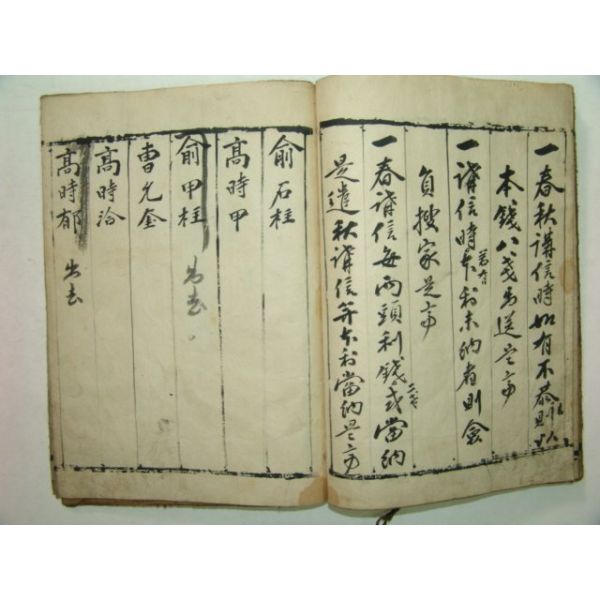 一春秋講信時如有不恭則以
本錢八戔出送是齊
一講信時若有本利未納者則會
員搜家是齊
一春講信每兩頭利錢二戔式當納
是遣秋講信并本利當納是齊
俞石柱
高時甲
俞甲柱 出去
曺允奎
高時洽
高時郁 出去